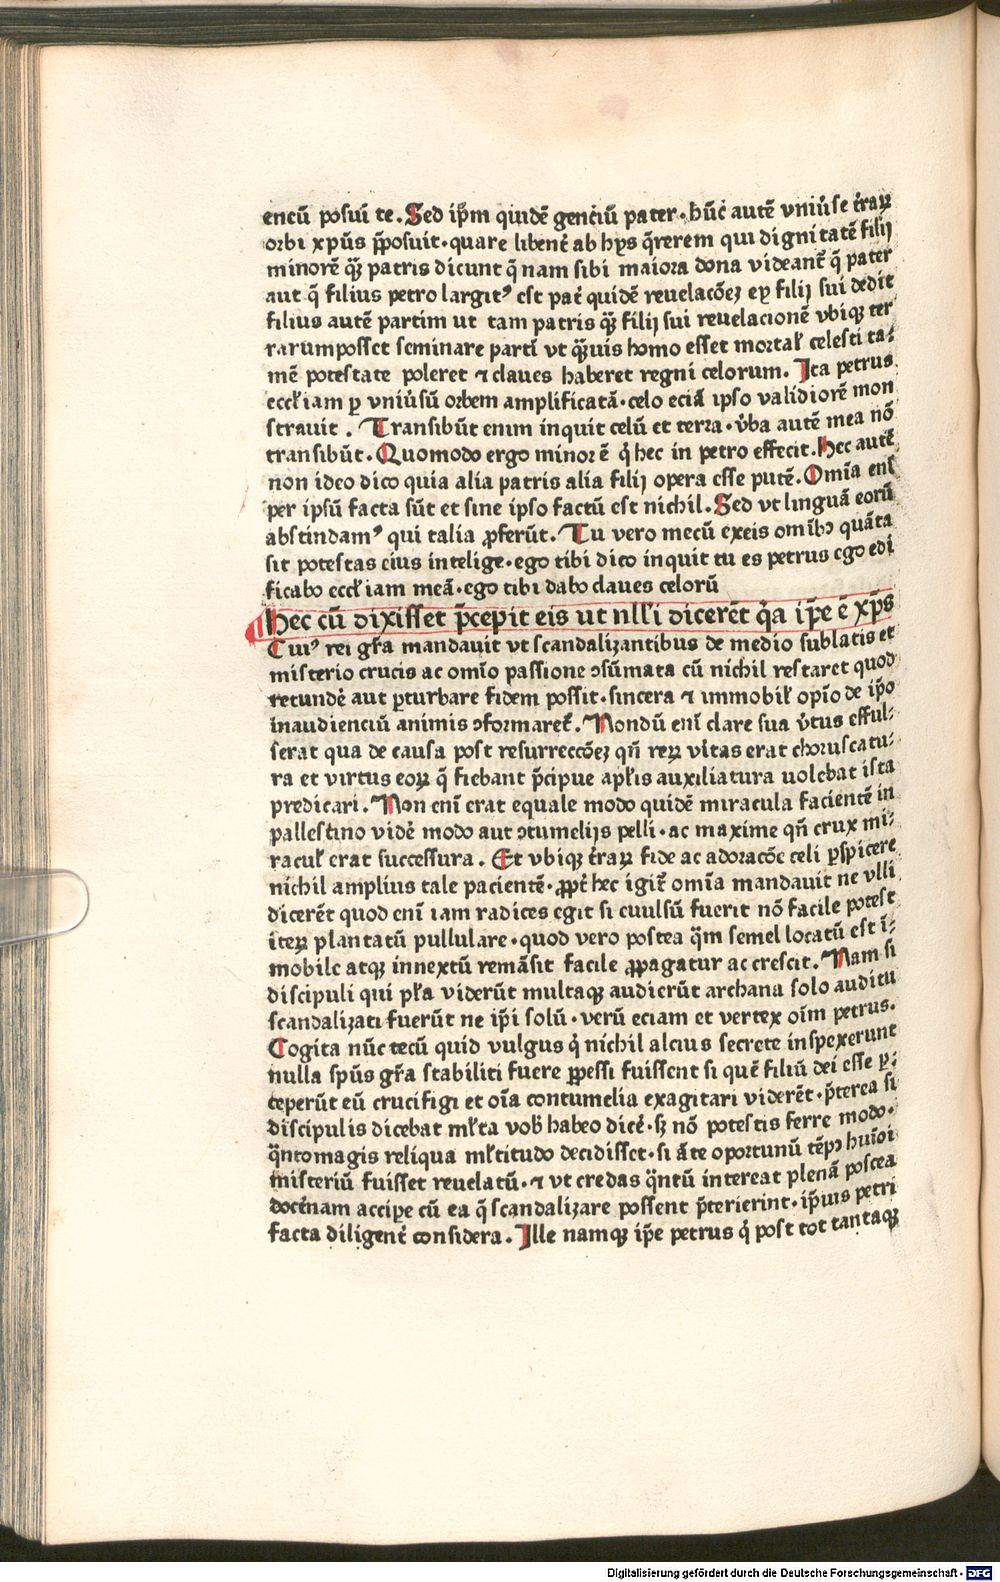 encū posui te. Sed ip̄m quidē genciū pater · hūc autē vniūse t̄raꝝ
orbi xp̄us p̄posuit · quare libent̄ ab hys q̄rerem qui dignitatē filij
minorē qꝫ patris dicunt q̄ nam sibi maiora dona videant̄ q̄ pater
aut q̄ filius petro largitꝰ est pat̄ quidē reuelacōeꝫ eꝰ filij sui dedit
filius autē partim ut tam patris qꝫ filij sui reuelacionē vbiqꝫ ter
rarumposset seminare parti vt qꝫuis homo esset mortaƚ celesti ta-
mē potestate poleret ⁊ claues haberet regni celorum. Ita petrus
eccƚiam ꝑ vniūsū orbem amplificatā · celo eciā ipso validiorē mon
strauit . Transibūt enim inquit celū et terra · v̄ba autē mea nō
transibūt · Quomodo ergo minor ē q̇ hec in petro effecit. Hec autē
non ideo dico quia alia patris alia filij opera esse putē. Omīa enī
per ipsū facta sūt et sine ipso factū est nichil. Sed vt linguā eorū
abstindamꝰ qui talia ꝓferūt. Tu vero mecū exeis omībꝫ quāta
sit potestas eius intelige · ego tibi dico inquit tu es petrus ego edi
ficabo eccƚiam meā · ego tibi dabo claues celorū
Hec cū dixisset p̄cepit eis ut nlli dicerēt q̇a ip̄e ē xp̄s
Cuiꝰ rei gr̄a mandauit vt scandalizantibus de medio sublatis et
misterio crucis ac omīo passione ↄsūmata cū nichil restaret quod
retundē aut ꝑturbare fidem possit · sincera ⁊ immobiƚ opīo de ip̄o
inaudienciū animis ↄformaret̄. Nondū enī clare sua v̄tus efful-
serat qua de causa post resurreccōeꝫ qn̄ reꝝ v̄itas erat choruscatu-
ra et virtus eoꝝ q̄ fiebant p̄cipue apƚis auxiliatura uolebat ista
predicari. Non enī erat equale modo quidē miracula facientē in
pallestino vidē modo aut ↄtumelijs pelli · ac maxime qn̄ crux mi-
racuƚ erat successura. Et vbiqꝫ t̄raꝝ fide ac adoracōe celi ꝑspicere
nichil amplius tale pacientē · ꝓpt̄ hec igit̄ omīa mandauit ne vlli
dicerēt quod enī iam radices egit si euulsū fuerit nō facile potest
iteꝝ plantatū pullulare · quod vero postea q̄m semel locatū est ī-
mobile atqꝫ innextū remāsit facile ꝓpagatur ac crescit. Nam si
discipuli qui pƚa viderūt multaqꝫ audierūt archana solo auditu
scandalizati fuerūt ne ip̄i solū · verū eciam et vertex oīm petrus.
Cogita nūc tecū quid vulgus q̇ nichil alcius secrete inspexerunt
nulla sp̄us gr̄a stabiliti fuere ꝑpessi fuissent si quē filiū dei esse ꝑ-
ceperūt eū crucifigi et oīa contumelia exagitari viderēt · p̄terea si
discipulis dicebat mƚta vob̄ habeo dicē · sꝫ nō potestis ferre modo ·
q̄nto magis reliqua mƚtitudo decidisset · si āte oportunū tēpꝰ huiꝰoi
misteriū fuisset reuelatū · ⁊ vt credas q̄ntū intereat plenā postea
doct̄nam accipe cū ea q̄ scandalizare possent p̄terierint · ip̄iuis petri
facta diligent̄ considera. Ille namqꝫ ip̄e petrus q̇ post tot tantaqꝫ
Digitalisierung gefördert durch die Deutsche Forschungsgemeinschaft - DFG